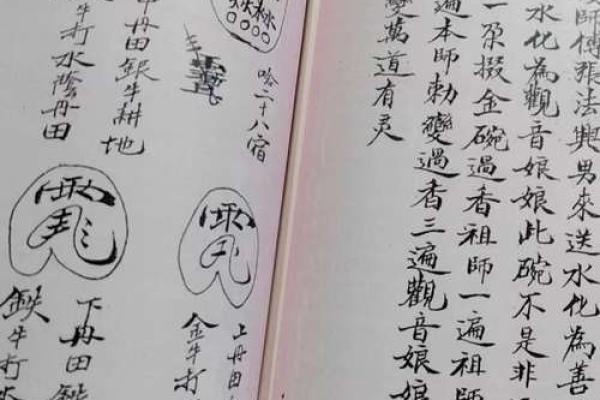 師傅張法興男來送水化為善
水化為觀音娘娘此碗不是非
一朶掇金碗過香祖師一遍祖師
遍本師勅變過香三遍觀音娘娘
變萬道有灵
哈二十八宿
上丹田
金牛打
丹田銀牛耕地
牛打水陰丹田
下丹田
鉄牛打水